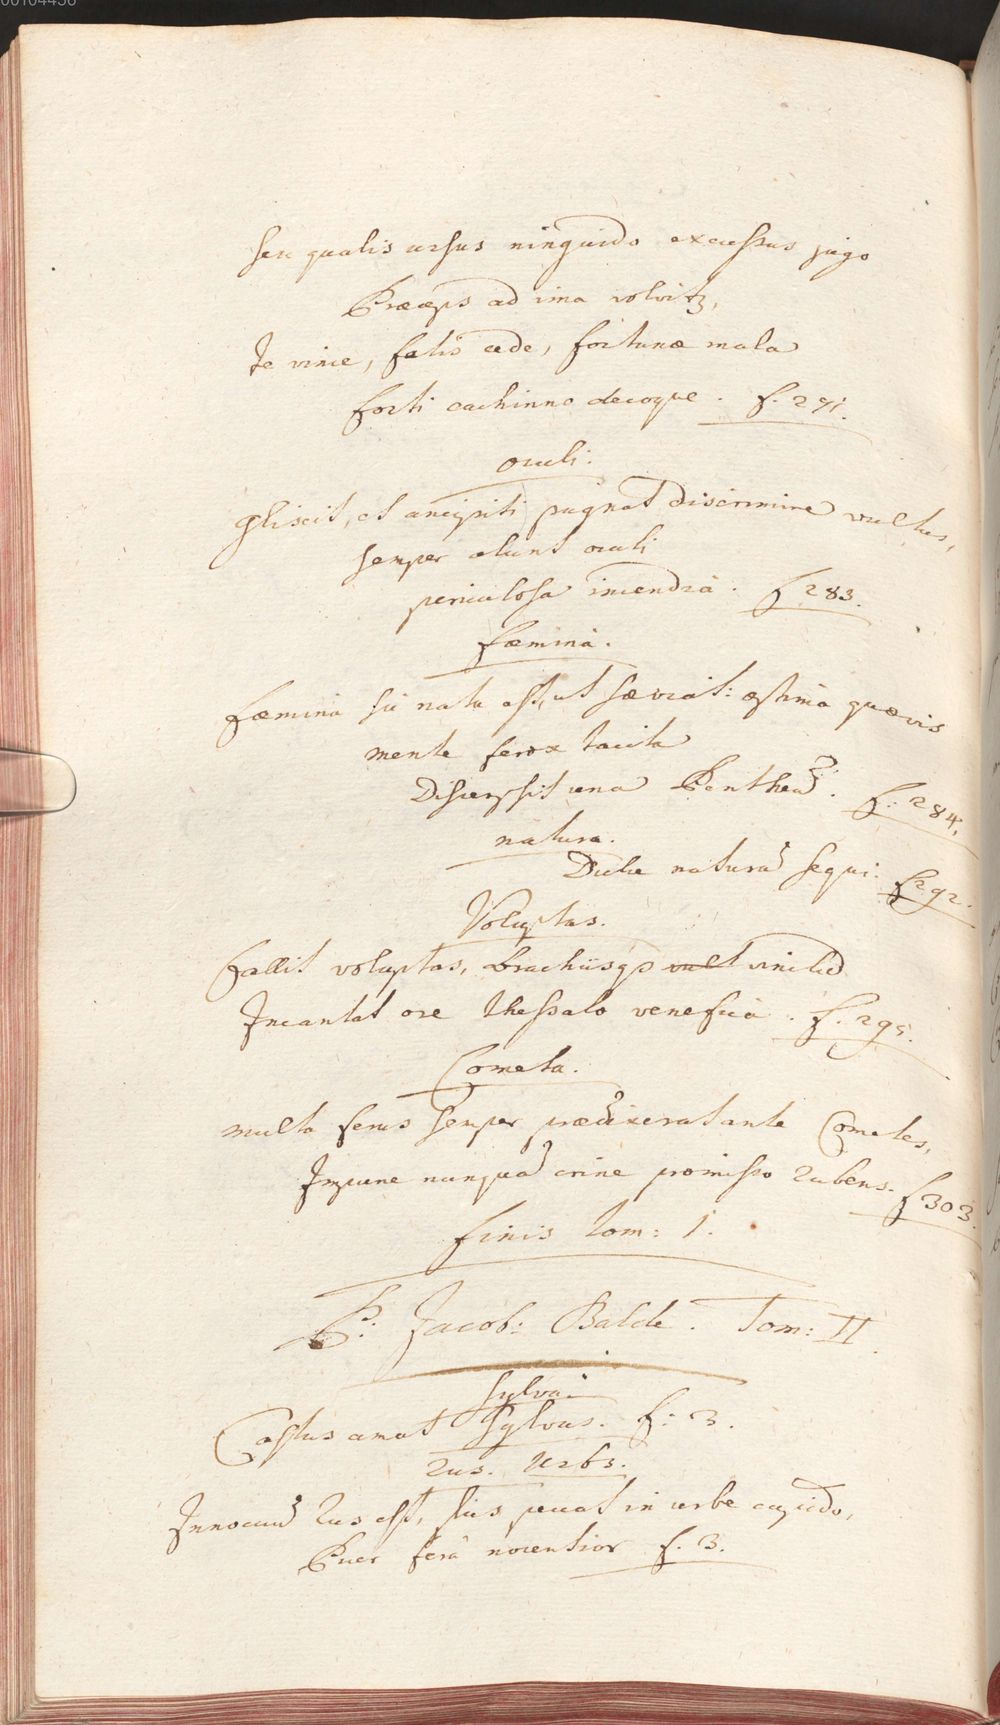 00104436
seu qualis ursus ninguido excussus jugo
Præceps ad ima volvitꝫ,
Te vince, fatis cede, fortunæ mala
forti cachinno decoque. f. 291.
oculi.
gliscit, et ancipiti pugnat discrimine vultus,
semper alunt oculi
periculosa incendia. f 283.
fæmina.
fæmina sic nata est, ut sæviat: æstima quævis
mente ferox tacita
Discerpsit una Pentheũ. f: 284.
natura.
Dulce naturã sequi. f 292.
Voluptas.
fallit voluptas, brachiisqꝫ vult vinctũ
Incantat ore thessalo venefica. f. 295.
Cometa.
multa ferus semper prædixerat ante Cometes,
Impune nunquã crine promisso rubens. f 303.
finis tom: 1.
P: Jacob: Balde. Tom: II.
sylva
Castus amat sylvas. f: 3.
rus. Urbs.
Innocuũ rus est, plus peccat in urbe cupido,
Puer ferâ nocentior f. 3.